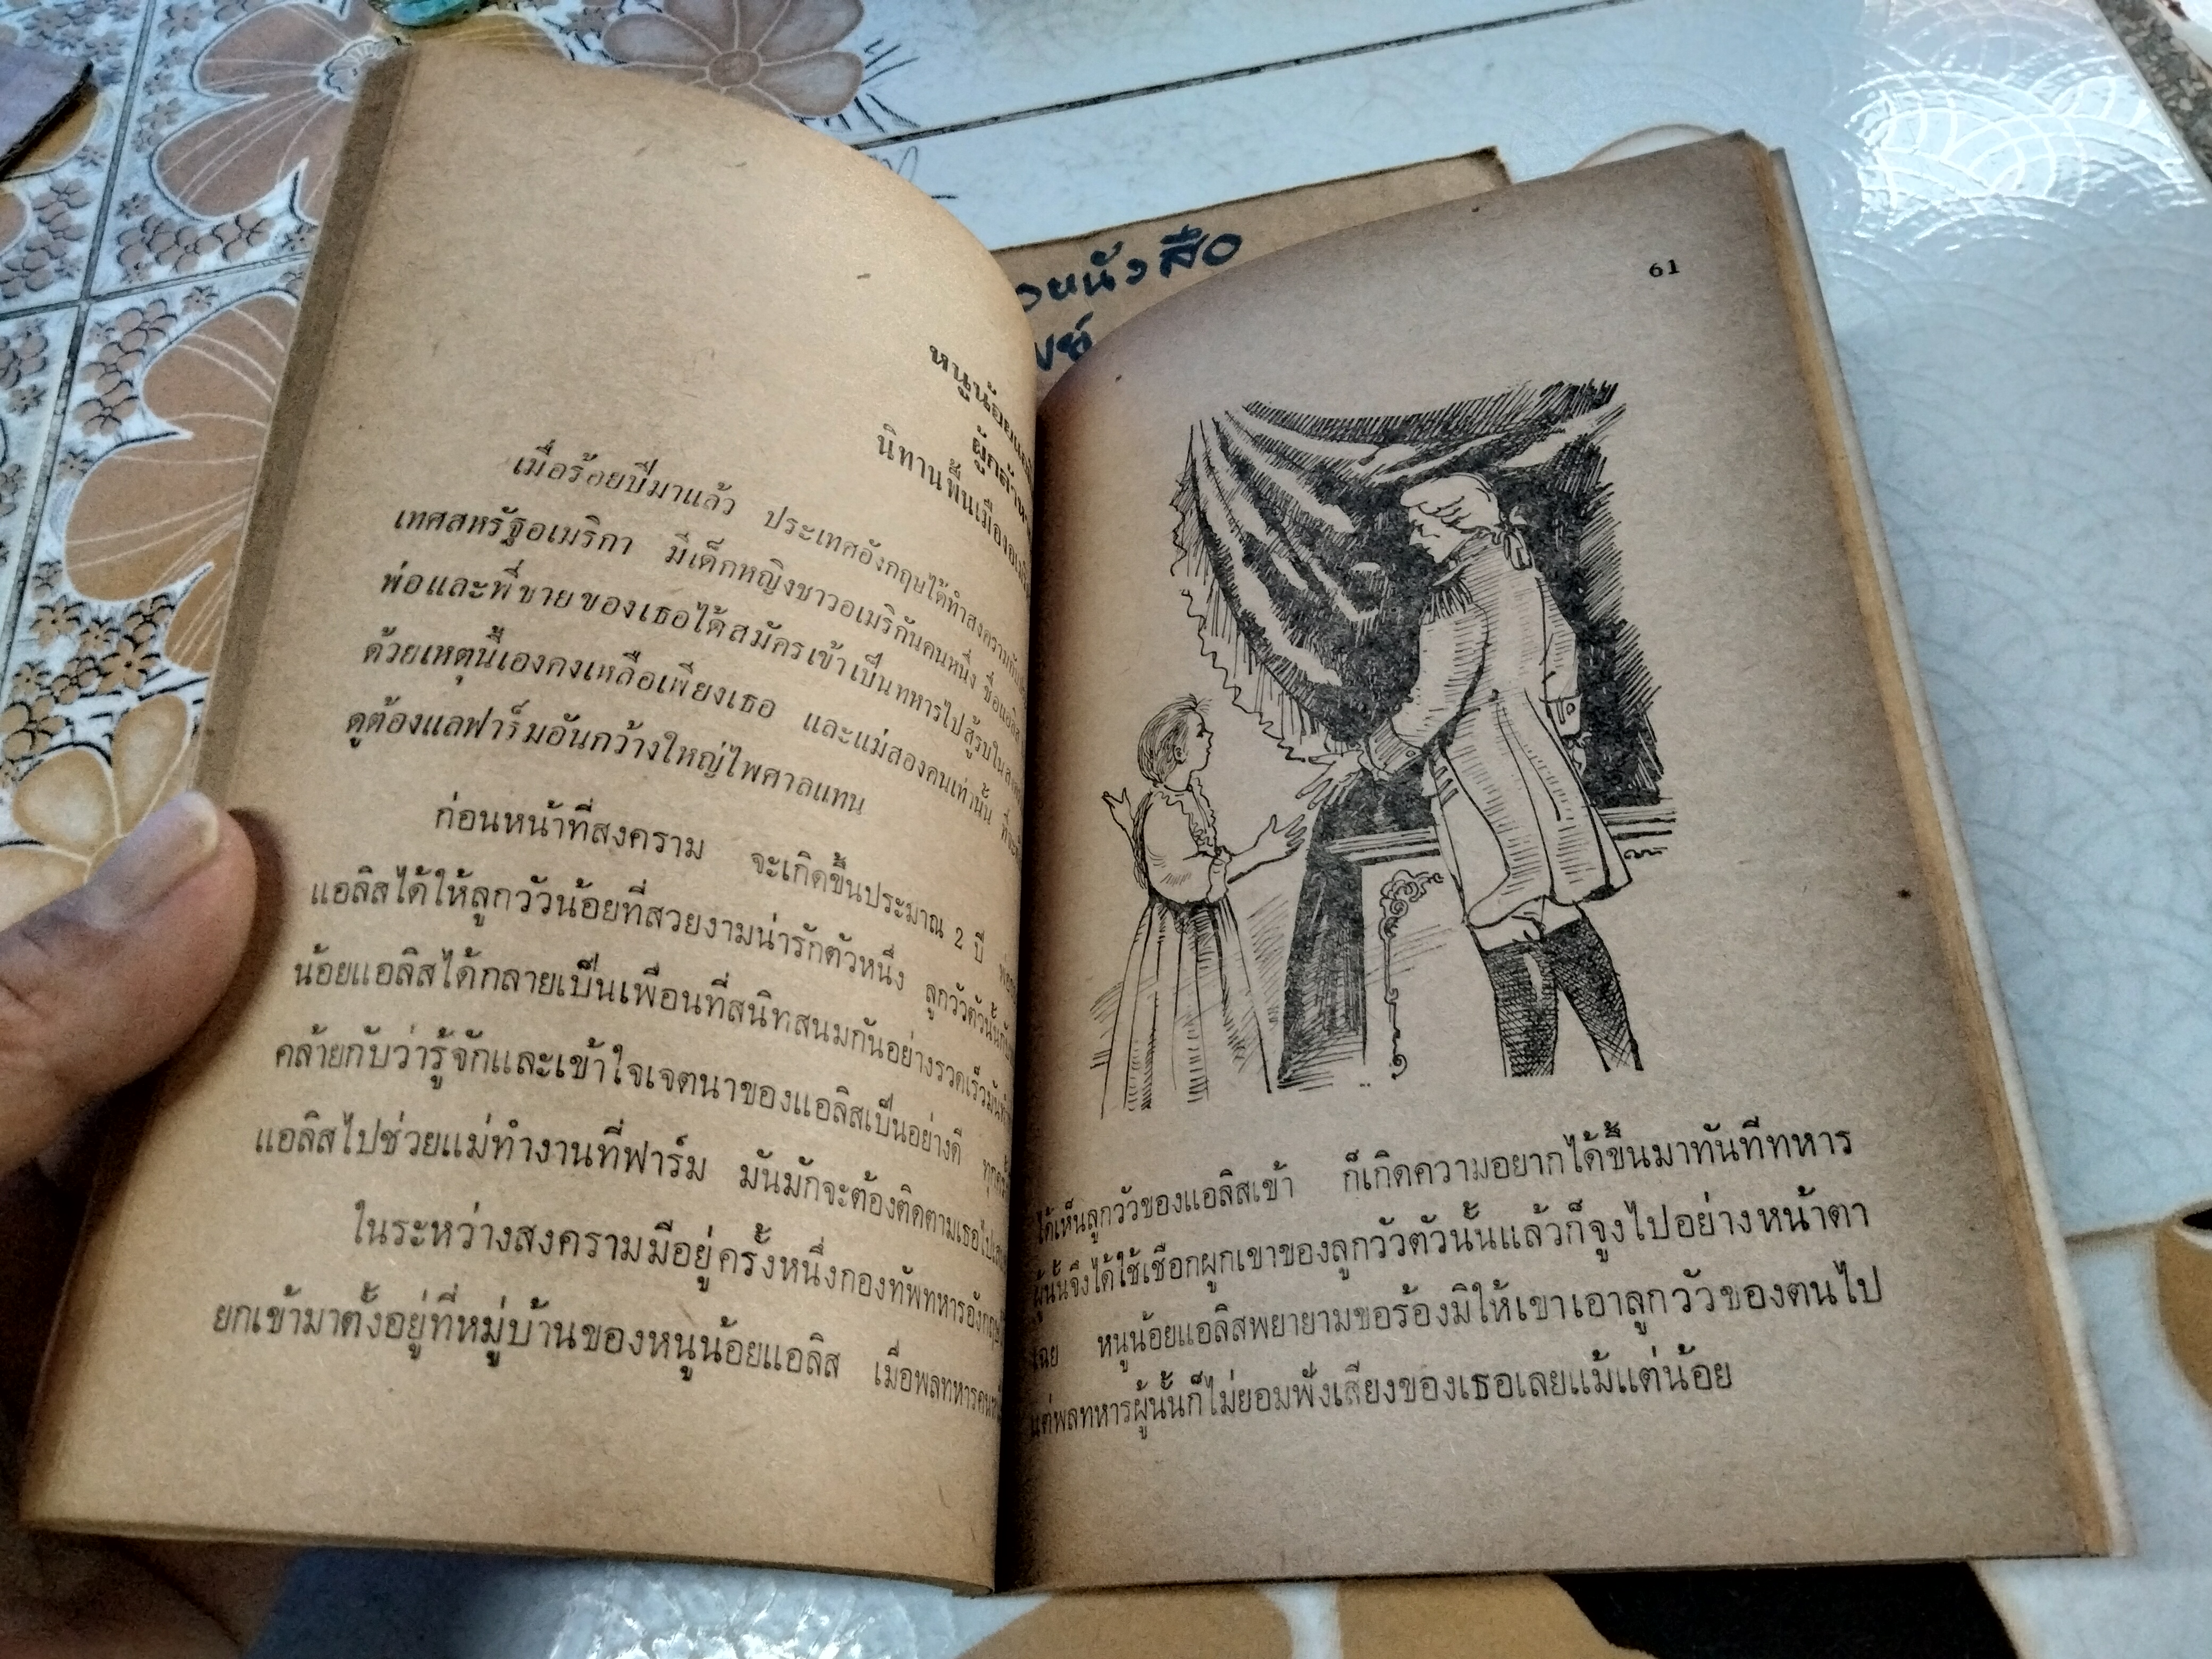 หนูน้อย
นิทานพื้นเมือง
เมื่อร้อยปีมาแล้ว ประเทศอังกฤษได้ทำสงครามกับ
เทศสหรัฐอเมริกา มีเด็กหญิงชาวอเมริกันคนหนึ่ง ชื่อแอลิส
พ่อและพี่ชายของเธอได้สมัครเข้าเป็นทหารไปสู้รบใน
ด้วยเหตุนี้เองคงเหลือเพียงเธอ และแม่สองคนเท่านั้น
ดูต้องแลฟาร์มอันกว้างใหญ่ไพศาลแทน
ก่อนหน้าที่สงคราม จะเกิดขึ้นประมาณ 2 ปี
แอลิสได้ให้ลูกวัวน้อยที่สวยงามน่ารักตัวหนึ่ง ลูกวัวตัวนั้นกับ
น้อยแอลิสได้กลายเป็นเพื่อนที่สนิทสนมกันอย่างรวดเร็ว
คล้ายกับว่ารู้จักและเข้าใจเจตนาของแอลิสเป็นอย่างดี
แอลิสไปช่วยแม่ทำงานที่ฟาร์ม มันมักจะต้องติดตามเธอไป
ในระหว่างสงครามมีอยู่ครั้งหนึ่งกองทัพทหารอังกฤษ
ยกเข้ามาตั้งอยู่ที่หมู่บ้านของหนูน้อยแอลิส เมื่อพลทหาร
หนังสือ
61
ได้เห็นลูกวัวของแอลิสเข้า ก็เกิดความอยากได้ขึ้นมาทันทีทหาร
ผู้นั้นจึงได้ใช้เชือกผูกเขาของลูกวัวตัวนั้นแล้วก็จูงไปอย่างหน้าตา
เฉย หนูน้อยแอลิสพยายามขอร้องมิให้เขาเอาลูกวัวของตนไป
แต่พลทหารผู้นั้นก็ไม่ยอมฟังเสียงของเธอเลยแม้แต่น้อย